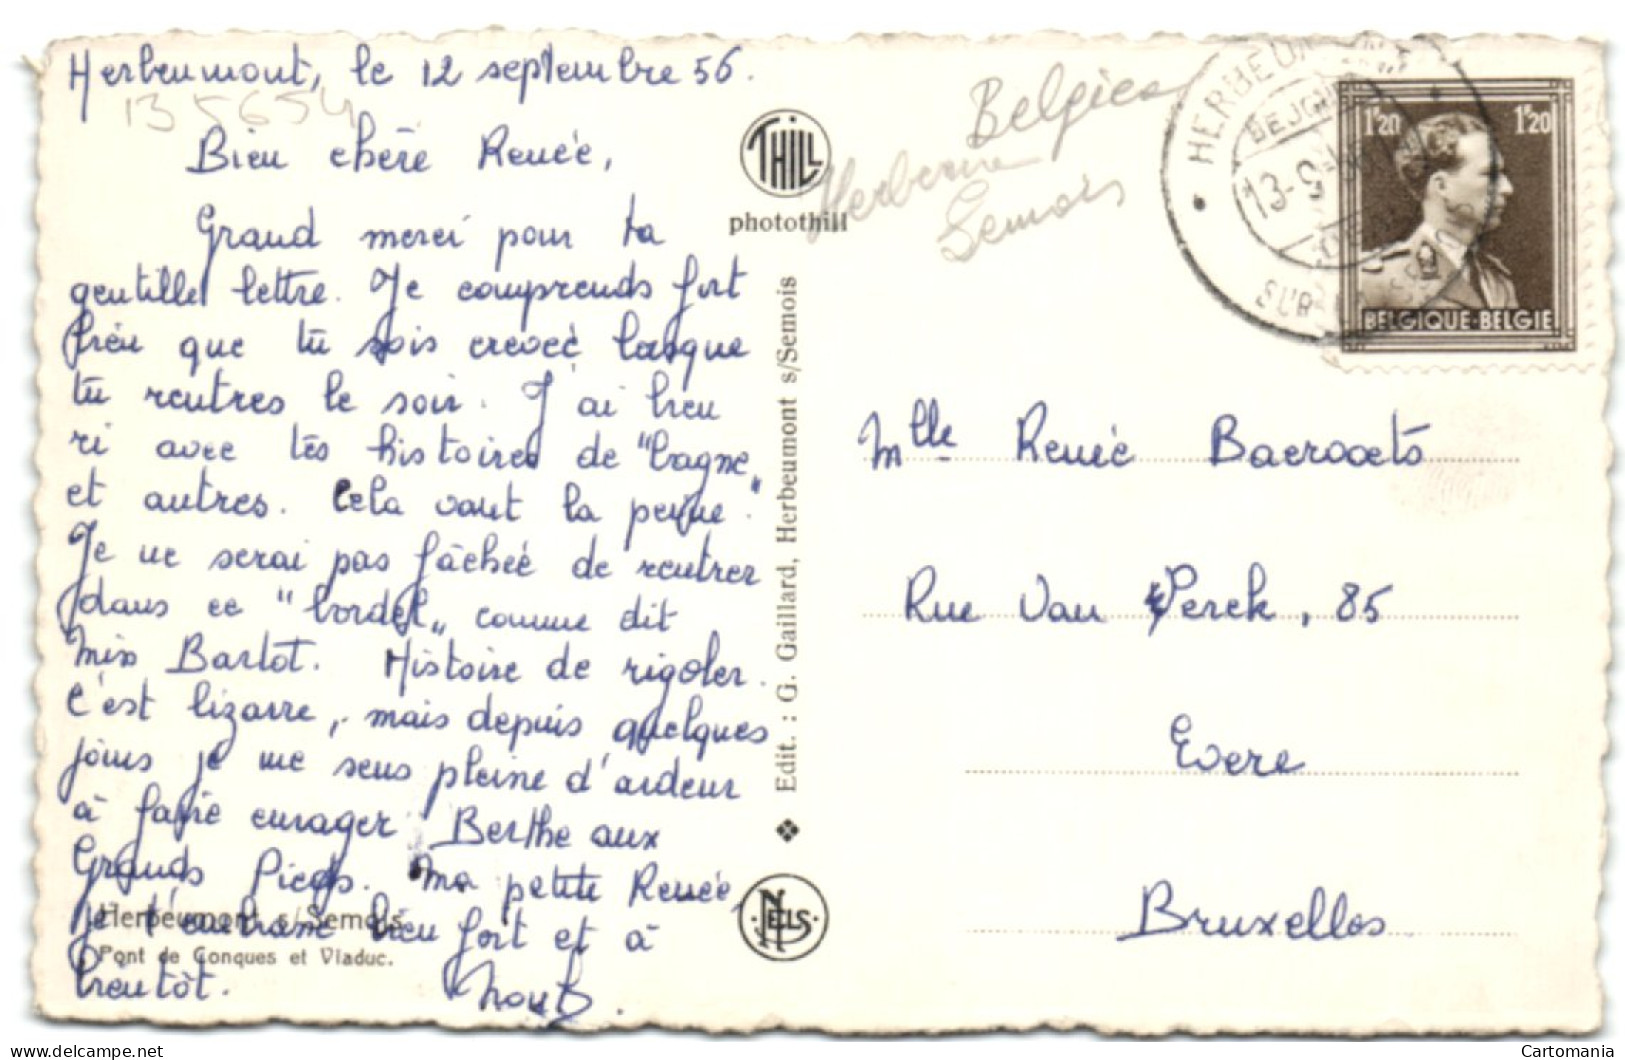 Herbeumont, le 12 septembre 56.
135654
Bien chère Renée,
Grand merci pour ta
gentille lettre. Je comprends fort
bien que tu sois crevée lorsque
tu rentres le soir. J'ai bien
ri avec tes histoires de "bagne"
et autres. Cela vaut la peine.
Je ne serai pas fâchée de rentrer
dans ce "bordel" comme dit
Miss Bartot. Histoire de rigoler.
C'est bizarre, mais depuis quelques
jours je me sens pleine d'ardeur
à faire enrager Berthe aux
Grands Pieds. Ma petite Renée,
je t'embrasse bien fort et à
bientôt.
Herbeumont s/Semois
Pont de Conques et Viaduc.
THILL
photothill
Edit. : G. Gaillard, Herbeumont s/Semois
NELS
Belgica
Semois
HERBEUMONT
13-9-56
SUR
1F20 1F20
BELGIQUE-BELGIE
Mlle Renée Baeroets
Rue Van Perck, 85
Evere
Bruxelles
Cartomania